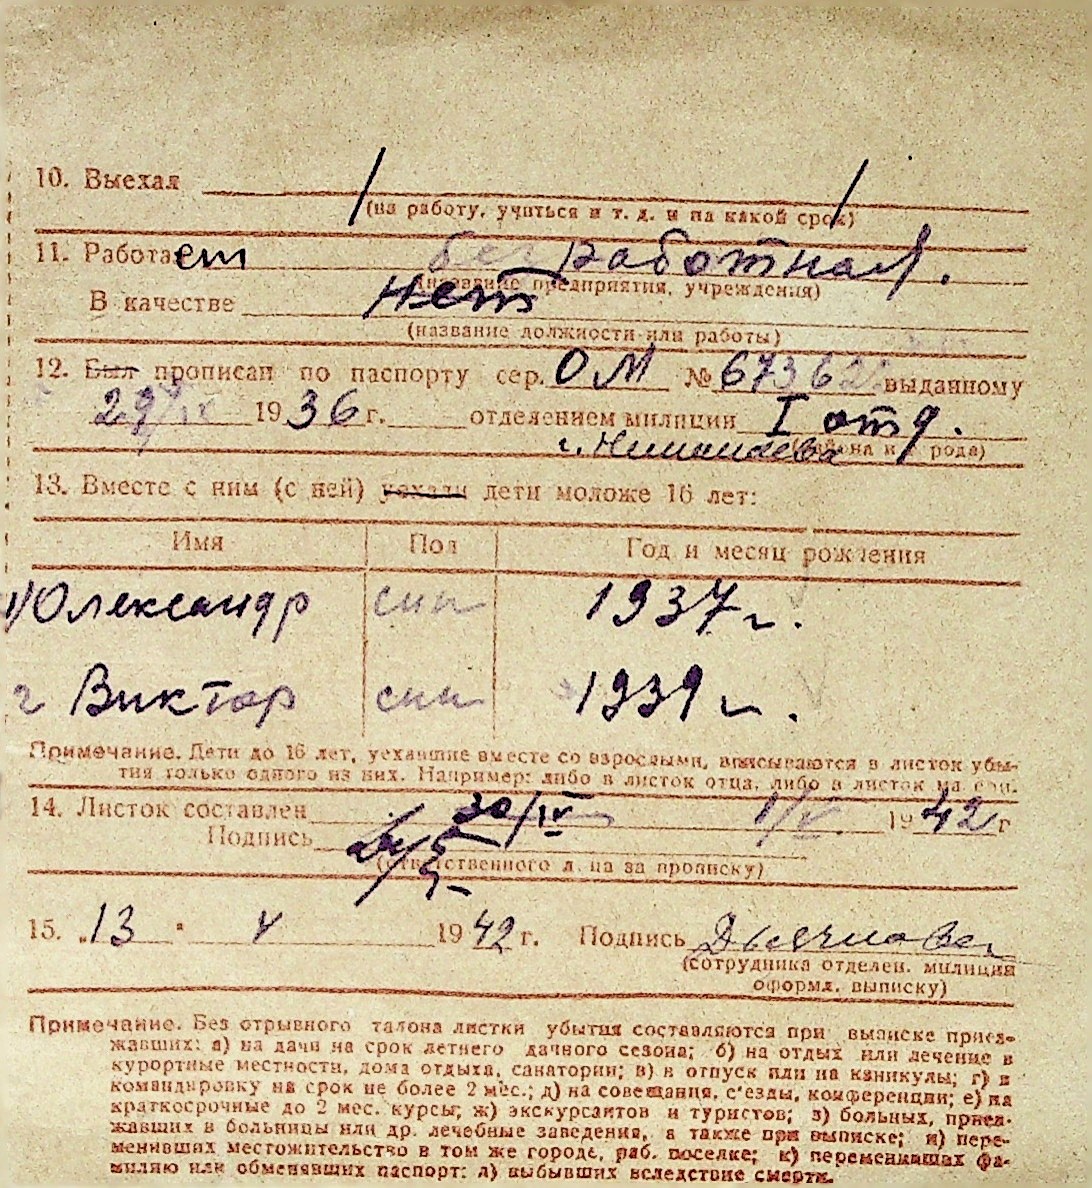 10. Выехал
(на работу, учиться и т. д. и на какой срок)
11. Работает безработная.
(название предприятия, учреждения)
В качестве нет
(название должности или работы)
12. Был прописан по паспорту сер. ОМ № 67362 выданному
29/IX 1936 г. отделением милиции I отд.
г. Николаева (района и города)
13. Вместе с ним (с ней) уехали дети моложе 16 лет:
Имя Пол Год и месяц рождения
1) Олександр син 1937 г.
2 Виктор син 1939 г.
Примечание. Дети до 16 лет, уехавшие вместе со взрослыми, вписываются в листок убы-
тия только одного из них. Например: либо в листок отца, либо в листок матери.
14. Листок составлен 30/IV 1/V 1942 г
Подпись
(ответственного л. ца за прописку)
15. „13" V 1942 г. Подпись
(сотрудника отделен. милиции
оформл. выписку)
Примечание. Без отрывного талона листки убытия составляются при выписке приез-
жавших: а) на дачи на срок летнего дачного сезона; б) на отдых или лечение в
курортные местности, дома отдыха, санатории; в) в отпуск или на каникулы; г) в
командировку на срок не более 2 мес.; д) на совещания, с'езды, конференции; е) на
краткосрочные до 2 мес. курсы; ж) экскурсантов и туристов; з) больных, приез-
жавших в больницы или др. лечебные заведения, а также при выписке; и) пере-
менивших местожительство в том же городе, раб. поселке; к) переменивших фа-
милию или обменявших паспорт; л) выбывших вследствие смерти.